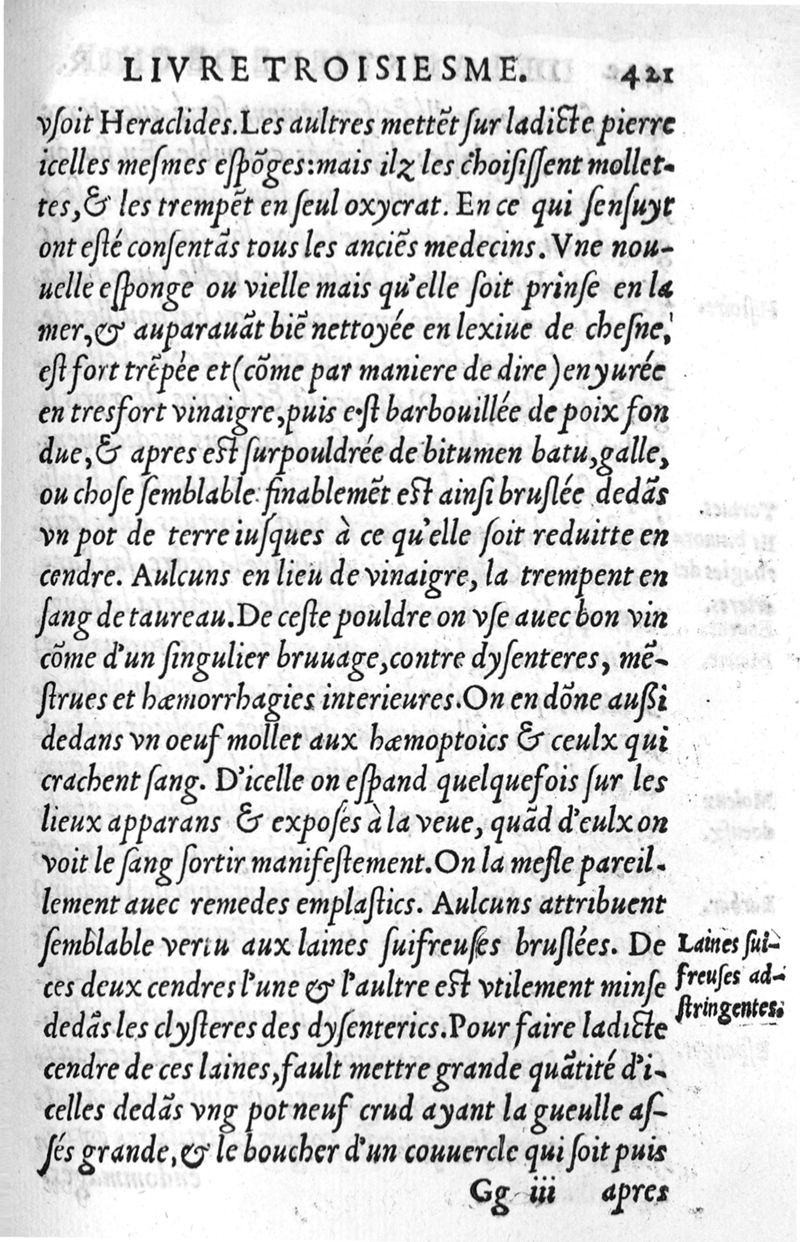 LIVRE TROISIESME. 421
vſoit Heraclides. Les aultres mettẽt ſur ladicte pierre
icelles meſmes eſpõges: mais ilz les choiſiſſent mollet-
tes, & les trempẽt en ſeul oxycrat. En ce qui ſenſuyt
ont eſté conſentãs tous les anciẽs medecins. Vne nou-
uelle eſponge ou vielle mais qu'elle ſoit prinſe en la
mer, & auparauãt biẽ nettoyée en lexiue de cheſne,
eſt fort trẽpée et (cõme par maniere de dire) enyurée
en tresfort vinaigre, puis eſt barbouillée de poix fon
due, & apres eſt ſurpouldrée de bitumen batu, galle,
ou choſe ſemblable: finablemẽt eſt ainſi bruſlée dedãs
vn pot de terre iuſques à ce qu'elle ſoit reduitte en
cendre. Aulcuns en lieu de vinaigre, la trempent en
ſang de taureau. De ceſte pouldre on vſe auec bon vin
cõme d'un ſingulier bruuage, contre dyſenteres, mẽ-
ſtrues et hæmorrhagies interieures. On en dõne auſſi
dedans vn oeuf mollet aux hæmoptoics & ceulx qui
crachent ſang. D'icelle on eſpand quelquefois ſur les
lieux apparans & expoſés à la veue, quãd d'eulx on
voit le ſang ſortir manifeſtement. On la meſle pareil-
lement auec remedes emplaſtics. Aulcuns attribuent
ſemblable vertu aux laines ſuifreuſes bruſlées. De
ces deux cendres l'une & l'aultre eſt vtilement minſe
dedãs les clyſteres des dyſenterics. Pour faire ladicte
cendre de ces laines, fault mettre grande quãtité d'i-
celles dedãs vng pot neuf crud ayant la gueulle aſ-
ſés grande, & le boucher d'un couuercle qui ſoit puis
Gg iii apres
Laines ſui-
freuſes ad-
ſtringentes.